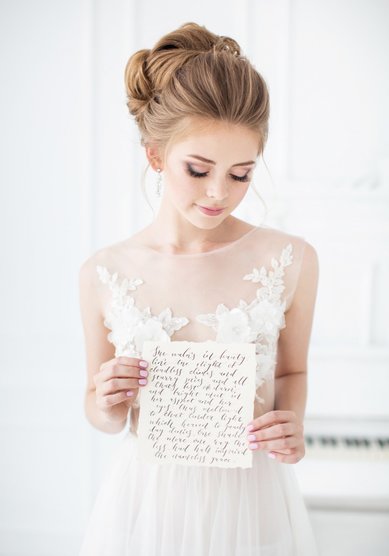 She walks in beauty
like the night of
cloudless climes and
starry skies and all
that's best of dark
and bright meet in
her aspect and her
eyes thus mellowed
to that tender light
which heaven to gaudy
day denies one shade
the more one ray the
less had half impaired
the nameless grace